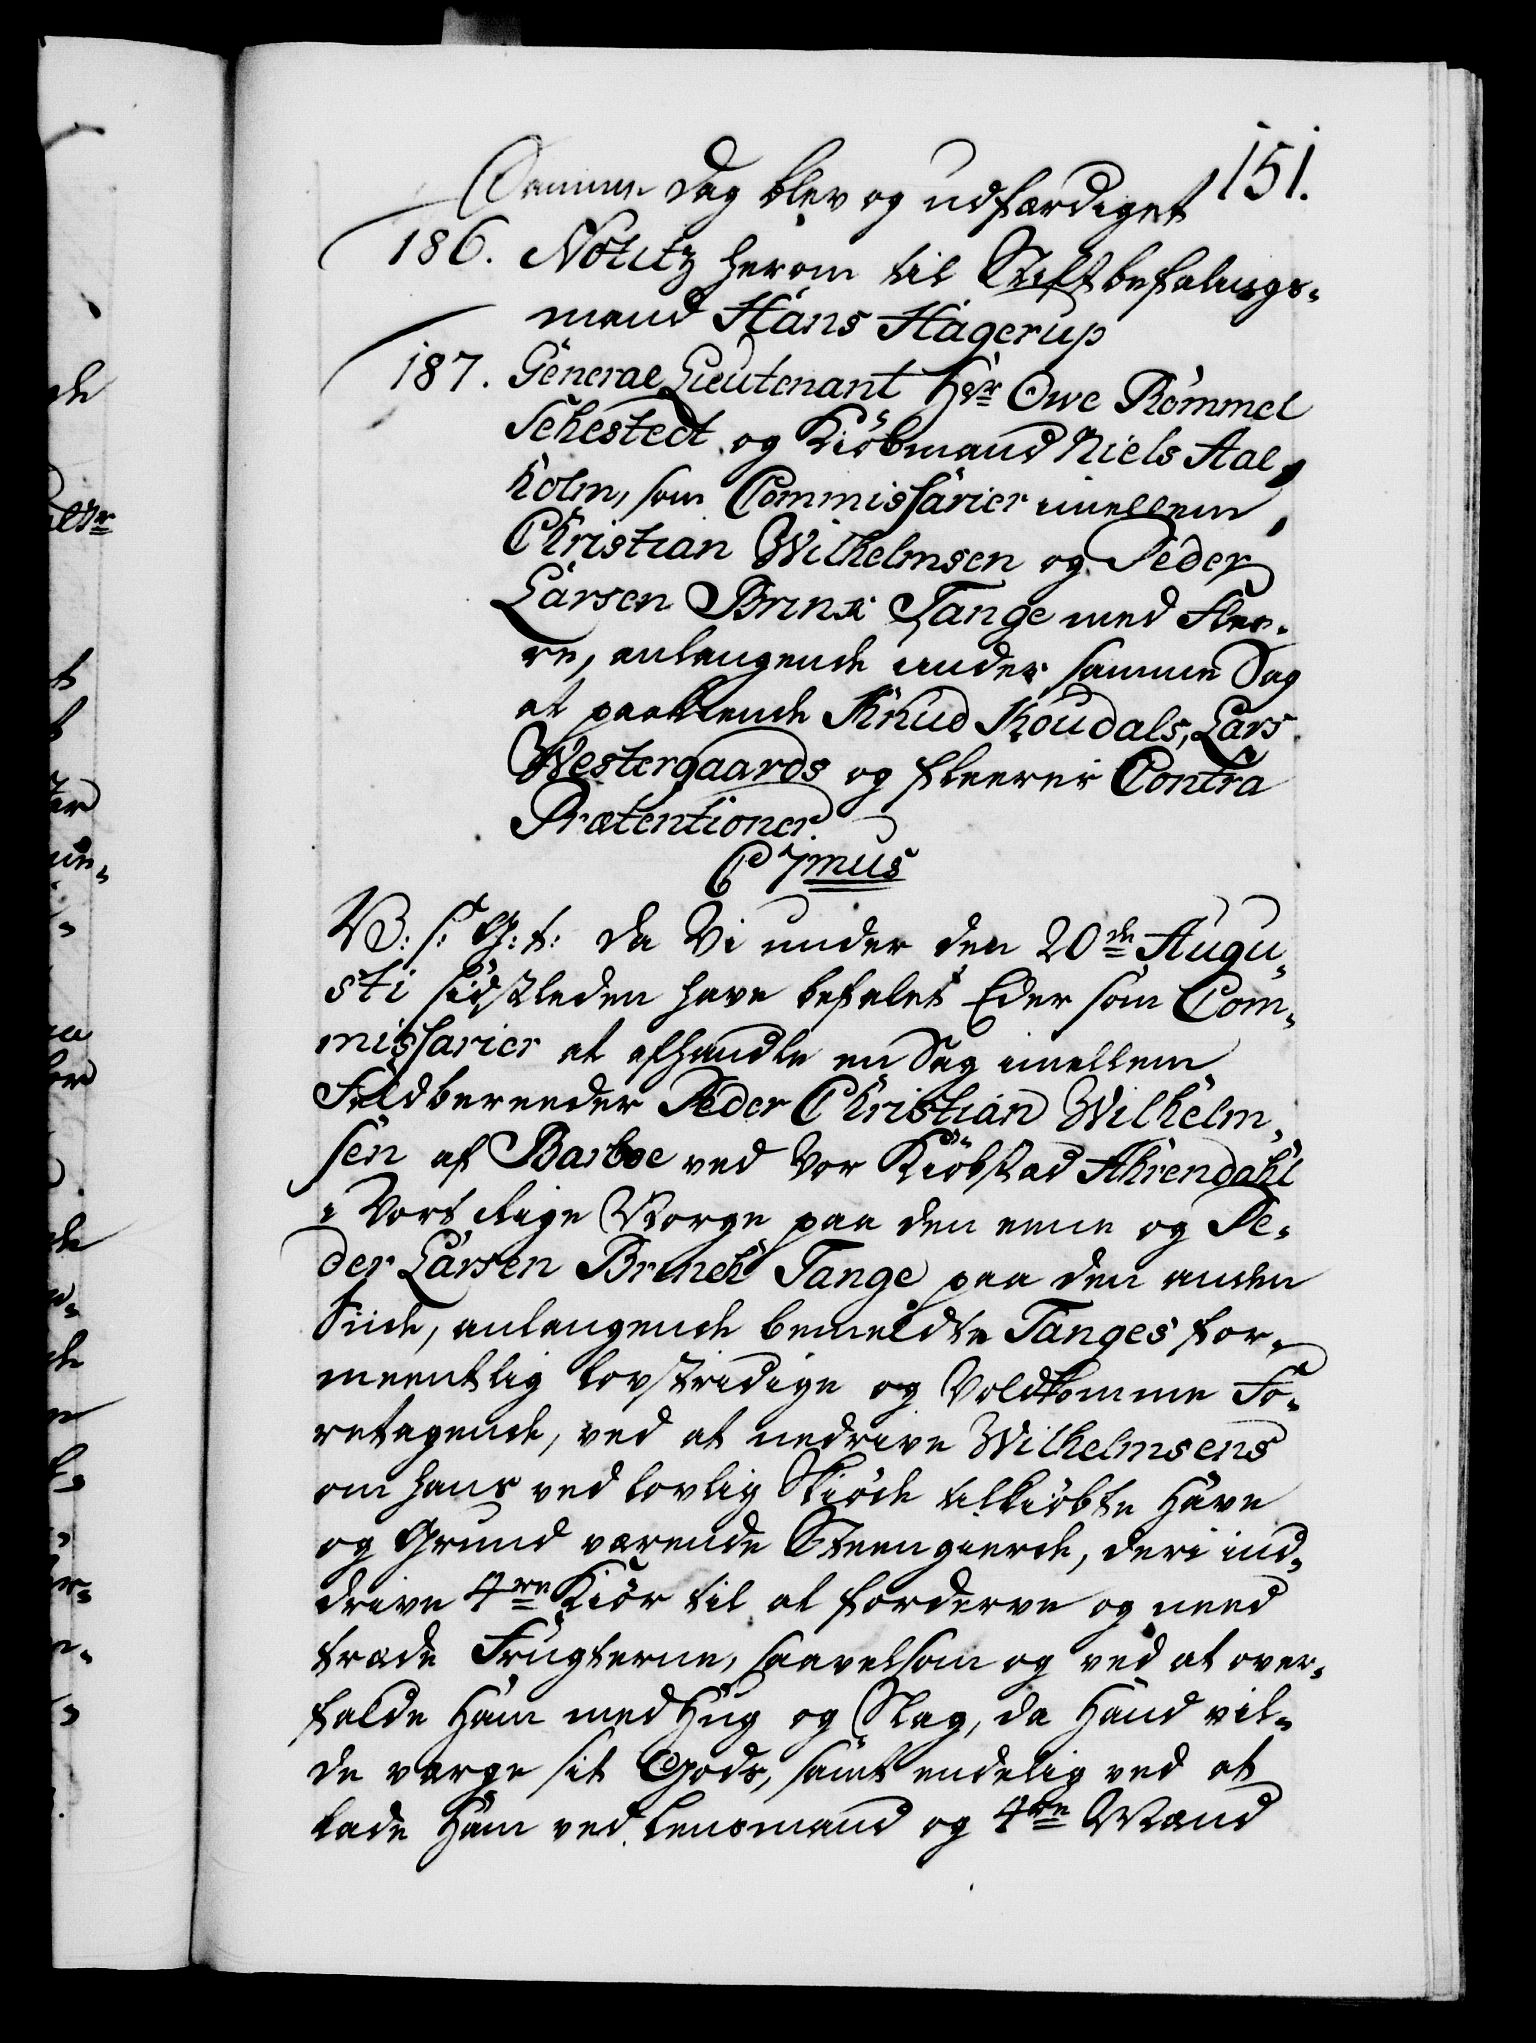 151.
Samme Dag blev og udfærdiget
186. Notitz herom til Stiftbefalings-
mand Hans Hagerup
187. General Lieutenant Hr Owe Rømmel
Sehestedt og Kiöbmand Niels Aal-
holm, som Commissarier imellem,
Christian Wilhelmsen og Peder
Larsen Brinx Tange med Flee-
re, anlangende under samme Sag
at paakiende Knud Koudals, Lars
Westergaards og fleeres Contra
Prætentioner.
C 7mus
V: S: G: t: Da Vi under den 20de Augu-
sti sidstleden have befalet Eder som Com-
missarier at afhandle en Sag imellem
Feldbereeder Peder Christian Wilhelm-
sen af Barboe ved Vor Kiöbstad Ahrendahl
i Vort Rige Norge paa den eene og Pe-
der Larsen Brinch Tange paa den anden
Siide, anlangende bemeldte Tanges for-
meentlig lovstridige og Voldsomme Fo-
retagende, ved at nedrive Wilhelmsens
om hans ved lovlig Skiöde tilkiöbte Have
og Grund værende Steengierde, deri ind-
drive 4re Kiör til at forderve og need
træde Frugterne, saavelsom og ved at over-
falde Ham med Hug og Slag, da Hand vil-
de værge sit Gods, samt endelig ved at
lade Ham ved Lensmand og 4re Mænd